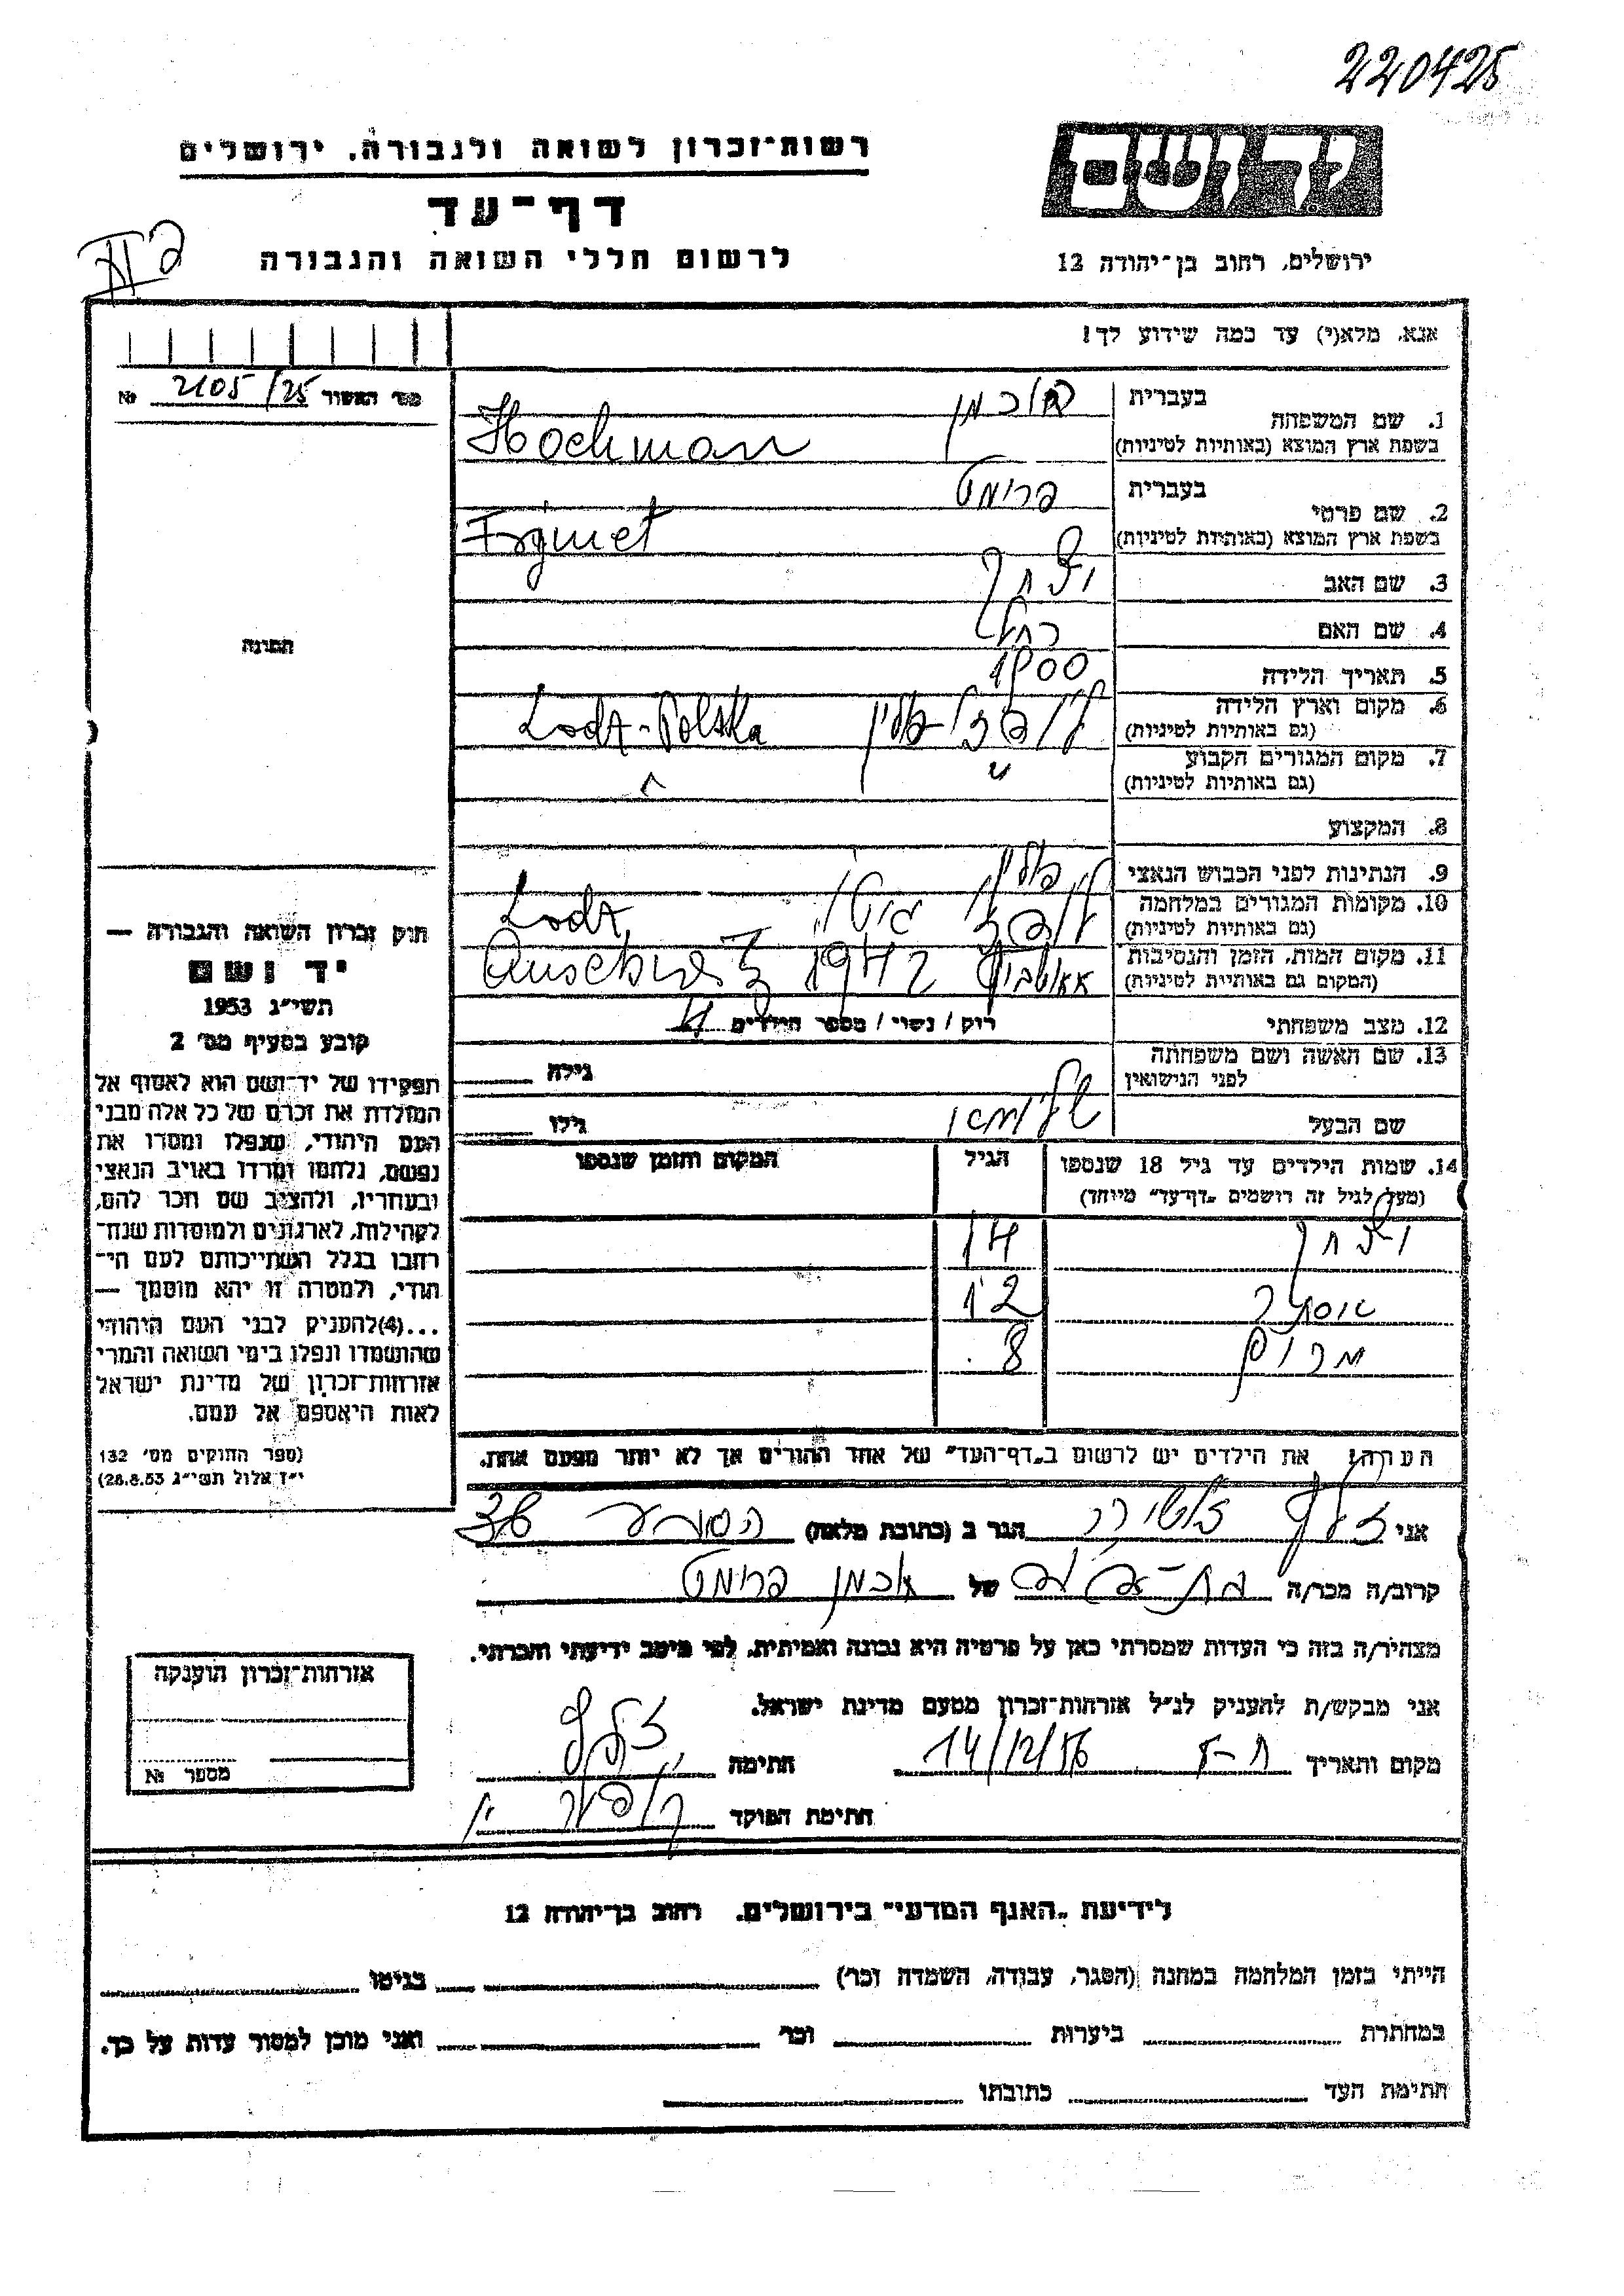 220425
רשות־זכרון לשואה ולגבורה, ירושלים
יד ושם
דף־עד
לרשום חללי השואה והגבורה
ירושלים, רחוב בן־יהודה 12
אנא, מלא(י) עד כמה שידוע לך!
מס' האשור 2105/25 №
1. שם המשפחה
בעברית הוכמן
בשפת ארץ המוצא (באותיות לטיניות) Hochman
2. שם פרטי
בעברית פרומט
בשפת ארץ המוצא (באותיות לטיניות) Frymet
3. שם האב יצחק
4. שם האם רחל
5. תאריך הלידה 1900
6. מקום וארץ הלידה (גם באותיות לטיניות) לודז' פולין Lodz - Polska
7. מקום המגורים הקבוע (גם באותיות לטיניות) "
8. המקצוע
9. הנתינות לפני הכבוש הנאצי פולין
10. מקומות המגורים במלחמה (גם באותיות לטיניות) לודז' גיטו Lodz
11. מקום המות, הזמן והנסיבות (המקום גם באותיות לטיניות) 1942
12. מצב משפחתי רוק / נשוי / מספר הילדים 4
13. שם האשה ושם משפחתה לפני הנישואין גילה
שם הבעל גילו
14. שמות הילדים עד גיל 18 שנספו הגיל המקום והזמן שנספו
(מעל לגיל זה רושמים „דף־עד” מיוחד)
יצחק 14
אסתר 12
מרים 8
הערה: את הילדים יש לרשום ב„דף־העד” של אחד ההורים אך לא יותר מפעם אחת.
תמונה
חוק זכרון השואה והגבורה —
יד ושם
תשי״ג 1953
קובע בסעיף מס' 2
תפקידו של יד־ושם הוא לאסוף אל
המולדת את זכרם של כל אלה מבני
העם היהודי, שנפלו ומסרו את
נפשם, נלחמו ומרדו באויב הנאצי
ובעוזריו, ולהציב שם וזכר להם,
לקהילות, לארגונים ולמוסדות שנח־
רחבו בגלל השתייכותם לעם הי־
הודי, ולמטרה זו יהא מוסמך —
...(4)להעניק לבני העם היהודי
שהושמדו ונפלו בימי השואה והמרי
אזרחות־זכרון של מדינת ישראל
לאות היאספם אל עמם.
(ספר החוקים מס' 132
י״ז אלול תשי״ג 28.8.53)
אני הגר ב (כתובת מלאה)
קרוב/ה מכר/ה של הוכמן פרומט
מצהיר/ה בזה כי העדות שמסרתי כאן על פרטיה היא נכונה ואמיתית, לפי מיטב ידיעתי והכרתי.
אני מבקש/ת להעניק לנ״ל אזרחות־זכרון מטעם מדינת ישראל.
מקום ותאריך 14/12/56 חתימה
חתימת הפוקד
אזרחות־זכרון הוענקה
מספר №
לידיעת „האגף המדעי” בירושלים, רחוב בן־יהודה 12
הייתי בזמן המלחמה במחנה (הסגר, עבודה, השמדה וכו') בגיטו
במחתרת ביערות וכו' ואני מוכן למסור עדות על כך.
חתימת העד כתובתו